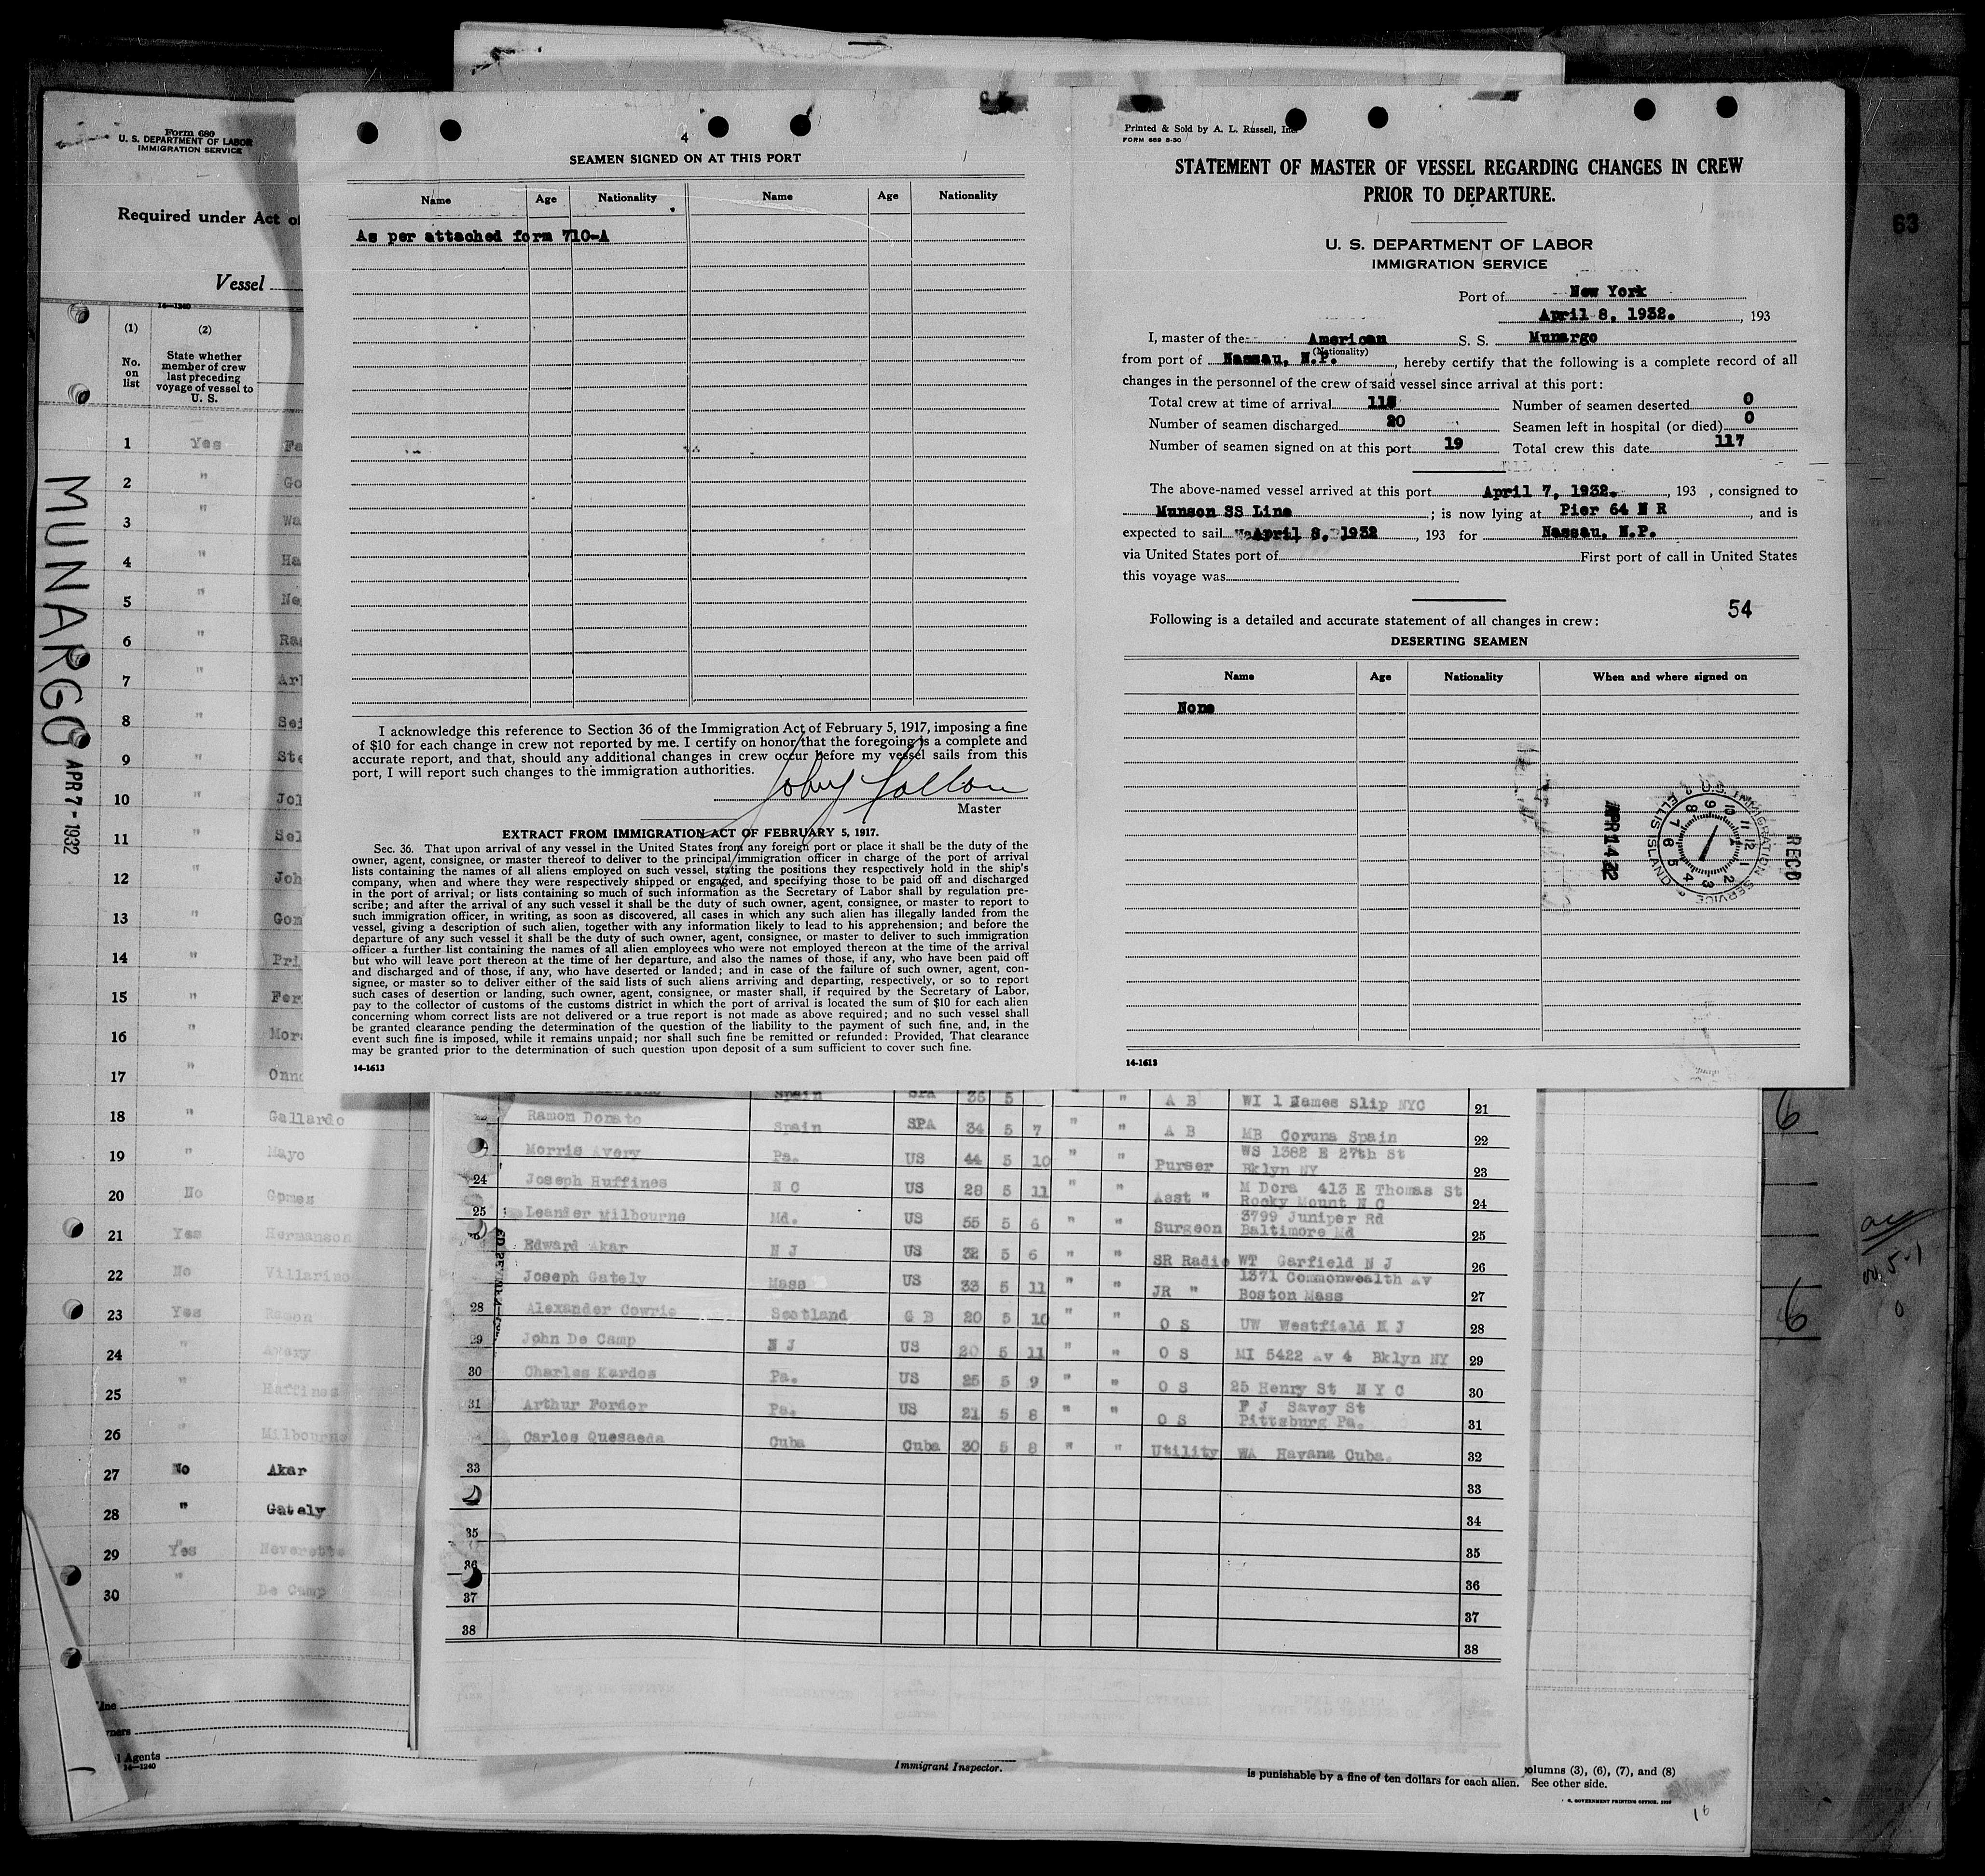 Form 680
U. S. DEPARTMENT OF LABOR
IMMIGRATION SERVICE
Required under Act of
Vessel
14—1240
(1) (2)
No. on list
State whether member of crew last preceding voyage of vessel to U. S.
1 Yes Fa
2 " Go
3 " Wa
4 " Ha
5 " Ne
6 " Ra
7 " Ar
8 " Sei
9 " Ste
10 " Jo
11 " Sel
12 " Joh
13 " Gom
14 " Pri
15 " Fer
16 " Mor
17 " Onn
18 " Gallardo
19 " Mayo
20 No Gomes
21 Yes Hermanson
22 No Villarino
23 Yes Ramon
24 " Avery
25 " Huffines
26 " Milbourne
27 No Akar
28 " Gately
29 Yes Neverette
30 " De Camp
MUNARGO APR 7 - 1932
Agents
14—1240
4
SEAMEN SIGNED ON AT THIS PORT
Name Age Nationality Name Age Nationality
As per attached form 710-A
I acknowledge this reference to Section 36 of the Immigration Act of February 5, 1917, imposing a fine
of $10 for each change in crew not reported by me. I certify on honor that the foregoing is a complete and
accurate report, and that, should any additional changes in crew occur before my vessel sails from this
port, I will report such changes to the immigration authorities.
Master
EXTRACT FROM IMMIGRATION ACT OF FEBRUARY 5, 1917.
Sec. 36. That upon arrival of any vessel in the United States from any foreign port or place it shall be the duty of the
owner, agent, consignee, or master thereof to deliver to the principal immigration officer in charge of the port of arrival
lists containing the names of all aliens employed on such vessel, stating the positions they respectively hold in the ship's
company, when and where they were respectively shipped or engaged, and specifying those to be paid off and discharged
in the port of arrival; or lists containing so much of such information as the Secretary of Labor shall by regulation pre-
scribe; and after the arrival of any such vessel it shall be the duty of such owner, agent, consignee, or master to report to
such immigration officer, in writing, as soon as discovered, all cases in which any such alien has illegally landed from the
vessel, giving a description of such alien, together with any information likely to lead to his apprehension; and before the
departure of any such vessel it shall be the duty of such owner, agent, consignee, or master to deliver to such immigration
officer a further list containing the names of all alien employees who were not employed thereon at the time of the arrival
but who will leave port thereon at the time of her departure, and also the names of those, if any, who have been paid off
and discharged and of those, if any, who have deserted or landed; and in case of the failure of such owner, agent, con-
signee, or master so to deliver either of the said lists of such aliens arriving and departing, respectively, or so to report
such cases of desertion or landing, such owner, agent, consignee, or master shall, if required by the Secretary of Labor,
pay to the collector of customs of the customs district in which the port of arrival is located the sum of $10 for each alien
concerning whom correct lists are not delivered or a true report is not made as above required; and no such vessel shall
be granted clearance pending the determination of the question of the liability to the payment of such fine, and, in the
event such fine is imposed, while it remains unpaid; nor shall such fine be remitted or refunded: Provided, That clearance
may be granted prior to the determination of such question upon deposit of a sum sufficient to cover such fine.
14-1613
Printed & Sold by A. L. Russell, Inc.
FORM 689 8-30
STATEMENT OF MASTER OF VESSEL REGARDING CHANGES IN CREW
PRIOR TO DEPARTURE.
U. S. DEPARTMENT OF LABOR
IMMIGRATION SERVICE
Port of New York
April 8, 1932. , 193
I, master of the American S. S. Munargo
(Nationality)
from port of Nassau, N.P. , hereby certify that the following is a complete record of all
changes in the personnel of the crew of said vessel since arrival at this port:
Total crew at time of arrival 118 Number of seamen deserted 0
Number of seamen discharged 20 Seamen left in hospital (or died) 0
Number of seamen signed on at this port 19 Total crew this date 117
The above-named vessel arrived at this port April 7, 1932. , 193 , consigned to
Munson SS Line ; is now lying at Pier 64 N R , and is
expected to sail April 8, 1932 , 193 for Nassau, N.P.
via United States port of First port of call in United States
this voyage was
54
Following is a detailed and accurate statement of all changes in crew:
DESERTING SEAMEN
Name Age Nationality When and where signed on
None
REC'D
U.S. IMMIGRATION SERVICE ELLIS ISLAND
12 1 2 3 4 5 6 7 8 9 10 11
14-1613
63
Spain SPA 36 5 " A B WI 1 James Slip NYC 21
Ramon Donato Spain SPA 34 5 7 " " A B MB Coruna Spain 22
Morris Avery Pa. US 44 5 10 " " Purser WS 1382 E 27th St Bklyn NY 23
24 Joseph Huffines N C US 28 5 11 " " Asst " M Dora 413 E Thomas St Rocky Mount N C 24
25 Leander Milbourne Md. US 55 5 6 " " Surgeon 3799 Juniper Rd Baltimore Md 25
Edward Akar N J US 32 5 6 " " SR Radio WT Garfield N J 26
Joseph Gately Mass US 33 5 11 " " JR " 1371 Commonwealth Av Boston Mass 27
28 Alexander Cowrie Scotland G B 20 5 10 " " O S UW Westfield N J 28
29 John De Camp N J US 20 5 11 " " O S MI 5422 Av 4 Bklyn NY 29
30 Charles Kardos Pa. US 25 5 9 " " O S 25 Henry St N Y C 30
31 Arthur Fordor Pa. US 21 5 8 " " O S F J Savoy St Pittsburg Pa. 31
Carlos Quesaeda Cuba Cuba 30 5 8 " " Utility WA Havana Cuba. 32
33 33
34
35 35
36 36
37 37
38 38
6
6
Immigrant Inspector.
is punishable by a fine of ten dollars for each alien. See other side.
columns (3), (6), (7), and (8)
GOVERNMENT PRINTING OFFICE
16